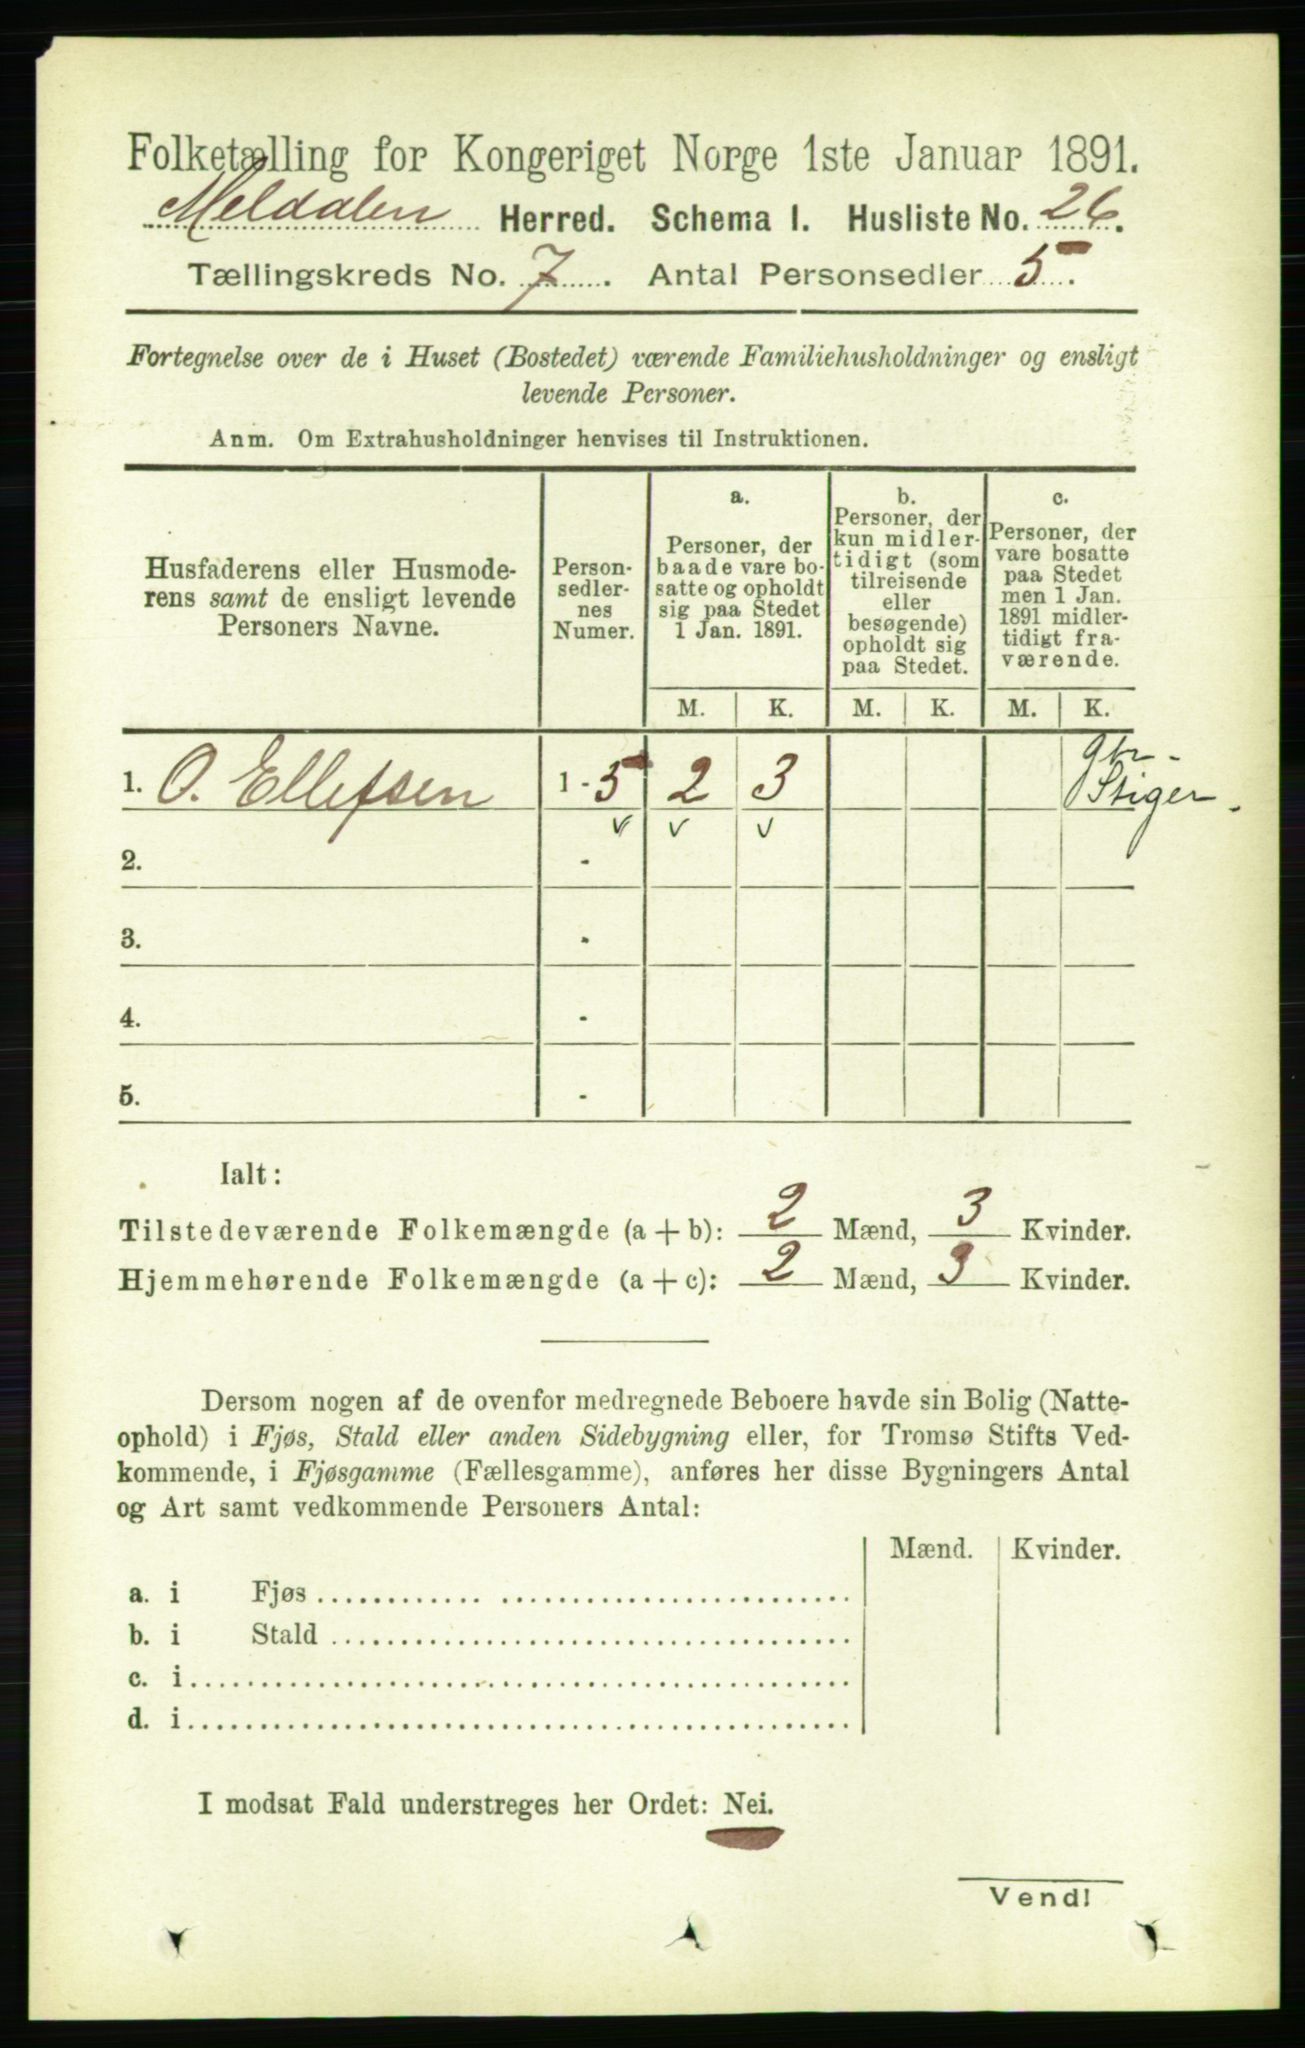 Folketælling for Kongeriget Norge 1ste Januar 1891.
Meldalen Herred. Schema I. Husliste No. 26.
Tællingskreds No. 7. Antal Personsedler 5.
Fortegnelse over de i Huset (Bostedet) værende Familiehusholdninger og ensligt
levende Personer.
Anm. Om Extrahusholdninger henvises til Instruktionen.
Husfaderens eller Husmode-
rens samt de ensligt levende
Personers Navne.
Person-
sedler-
nes
Numer.
a.
Personer, der
baade vare bo-
satte og opholdt
sig paa Stedet
1 Jan. 1891.
b.
Personer, der
kun midler-
tidigt (som
tilreisende
eller
besøgende)
opholdt sig
paa Stedet.
c.
Personer, der
vare bosatte
paa Stedet
men 1 Jan.
1891 midler-
tidigt fra-
værende.
M. K. M. K. M. K.
1. O. Ellefsen 1 - 5 2 3
Stiger.
v v v
2. -
3. -
4. -
5. -
Ialt:
Tilstedeværende Folkemængde (a + b): 2 Mænd, 3 Kvinder.
Hjemmehørende Folkemængde (a + c): 2 Mænd, 3 Kvinder.
Dersom nogen af de ovenfor medregnede Beboere havde sin Bolig (Natte-
ophold) i Fjøs, Stald eller anden Sidebygning eller, for Tromsø Stifts Ved-
kommende, i Fjøsgamme (Fællesgamme), anføres her disse Bygningers Antal
og Art samt vedkommende Personers Antal:
Mænd. Kvinder.
a. i Fjøs
b. i Stald
c. i
d. i
I modsat Fald understreges her Ordet: Nei.
Vend!